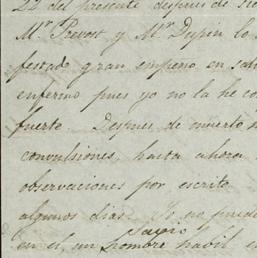 22 del presente despues de
Mr. Prevost, y Mr. Dupin lo
festado gran empeno en sab
enfermo pues yo no la he co
fuerto. Despues de muerto
convulsiones, hasta ahora
observaciones por escrito
algunos dias. Yo no puedo
sapio
en el, un hombre habil e